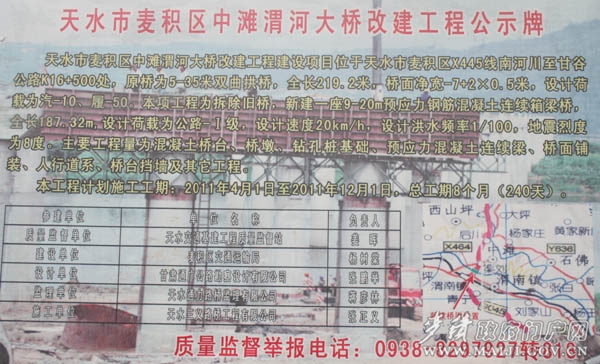 天水市麦积区中滩渭河大桥改建工程公示牌
天水市麦积区中滩渭河大桥改建工程建设项目位于天水市麦积区X445线南河川至甘谷
公路K16+500处，原桥为5-35米双曲拱桥，全长219.2米，桥面净宽-7+2×0.5米，设计荷
载为汽-10、履-50，本项工程为拆除旧桥，新建一座9-20m预应力钢筋混凝土连续箱梁桥，
全长187.32m，设计荷载为公路-Ⅰ级，设计速度20km/h，设计洪水频率1/100，地震烈度
为8度。主要工程量为混凝土桥台、桥墩、钻孔桩基础、预应力混凝土连续梁、桥面铺
装、人行道系、桥台挡墙及其它工程。
本工程计划施工工期：2011年4月1日至2011年12月1日，总工期8个月（240天）。
参建单位 单位名称 负责人
质量监督单位 天水交通基建工程质量监督站
建设单位 麦积区交通运输局 杨树棠
设计单位 甘肃通广公路勘察设计有限公司
监理单位 天水通方路桥监理有限公司 蒋彦林
施工单位 天水工义路桥工程有限公司 张正义
西山坪 大坪
后川 杨家庄 黄家新
X464 中滩 Y636
石佛
渭南镇 渭南镇 张白
X445 刘家山
质量监督举报电话：0938